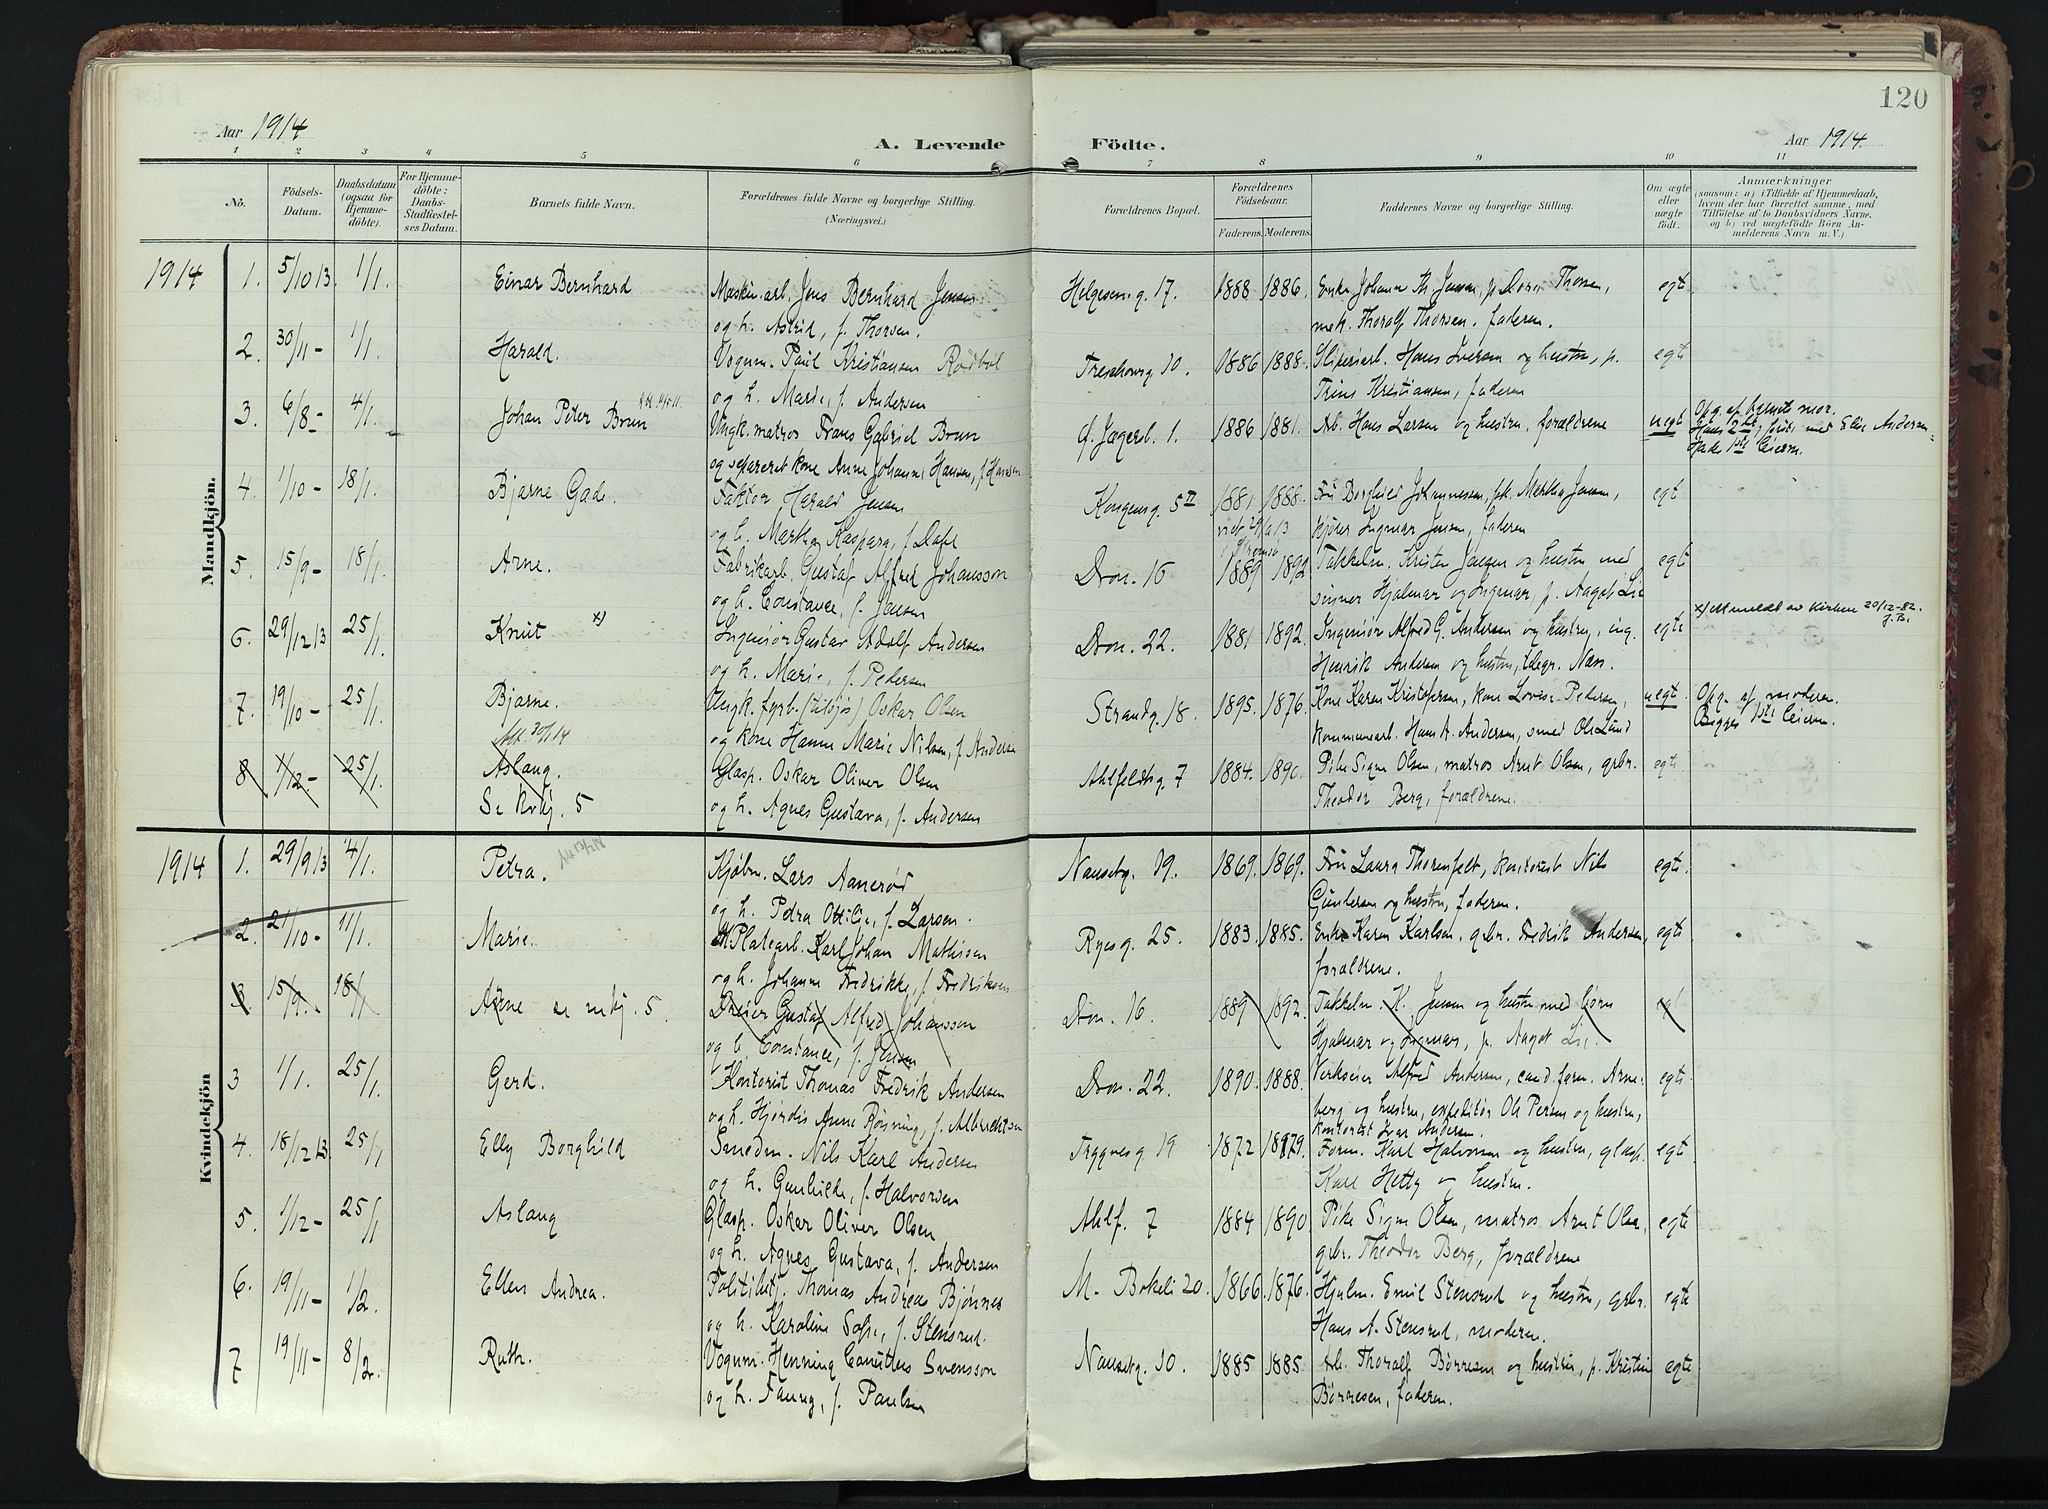 120
Aar 1914
A. Levende
Födte.
Aar 1914.
1 2 3 4 5 6 7 8 9 10 11
No.
Födsels-
Datum.
Daabsdatum
(ogsaa for
Hjemme-
döbte).
For Hjemme-
döbte:
Daabs-
Stadfæstel-
ses Datum.
Barnets fulde Navn.
Forældrenes fulde Navne og borgerlige Stilling.
(Næringsvei.)
Forældrenes Bopæl.
Forældrenes
Födselsaar.
Faderens. Moderens.
Faddernes Navne og borgerlige Stilling.
Om ægte
eller
uægte
födt.
Anmærkninger
(saasom: a) i Tilfælde af Hjemmedaab,
hvem der har forrettet samme, med
Tilföielse af to Daabsvidners Navne,
og b) ved uægtefödte Börn An-
melderens Navn m. V.)
Mandkjön.
1914 1. 5/10 13. 1/1. Einar Bernhard Maskin.arb. Jens Bernhard Jensen Helgesensg. 17. 1888 1886. Enke Johanne Th. Jensen, p. Thorsen, egte
og h. Astrid, f. Thorsen. mek. Thoralf Thorsen. faderen.
2. 30/11 - 1/1. Harald. Vognm. Paul Kristiansen Rødbøl Treschowsg 10. 1886 1888. Sliperiarb. Hans Iversen og hustru, p. egte
og h. Marie, f. Andersen Trine Kristiansen, faderen
3. 6/8 - 4/1. Johan Peter Brun Ungk. matros Frans Gabriel Brun f. Jægerb. 1. 1886 1881. Arb. Hans Larsen og hustru, forældrene uegt Opg. af barnets mor.
og separeret kone Anne Johanne Hansen, f. Hansen Hans 2det, med Elise Andersen
1ste leierm.
4. 1/10 - 18/1. Bjarne Gade. Faktor Harald Jensen Kongensg. 5 II 1881 1888. Fru Borghild Johannessen, frk. Martha Jensen, egt
og h. Martha Kaspara, f. Dahl Ingmar Jensen, faderen
5. 15/9 - 18/1. Arne. Fabrikarb. Gustaf Alfred Johansson Dron. 16 1889 1892 Takkelm. Kristen Jensen og hustru med egte
og h. Constance, f. Jensen sønner Hjalmar og Ingmar, p. Aagot Lie
6. 29/12 13 25/1. Knut x) Ingeniør Gustav Adolf Andersen Dron. 22. 1881 1892. Ingeniør Alfred G. Andersen og hustru, ing. egte x) Utmeldt av kirken 20/12-82.
J.B.
og h. Marie, f. Pedersen Henrik Andersen og hustru, telegr. Næss.
7. 19/10 - 25/1. Bjarne. Ungk. fyrb. (tilsjøs) Oskar Olsen Strandg. 18. 1895. 1876. Kone Karen Kristofersen, kone Lovise Pedersen, uegt. Opg. af moderen.
30/1 14 og kone Hanna Marie Nilsen, f. Andersen kommunearb. Hans A. Andersen, smed Ole Lund Begges 1ste leierm.
8 1/12 - 25/1. Aslaug. Glasp. Oskar Oliver Olsen Ahlfeldtsg. 7 1884. 1890. Pike Signe Olsen, matros Arnt Olsen, grbr. egte
Se kvkj. 5 og h. Agnes Gustava, f. Andersen Theodor Berg, forældrene.
Kvindekjön
1914 1. 29/9 13 4/1. Petra. Kjøbm. Lars Aanerød Nansetg. 19. 1869. 1869. Fru Laura Thorenfelt, kontorist Nils egte.
og h. Petra Ottilie, f. Larsen. Gundersen og hustru, faderen.
2. 21/10 - 11/1. Marie. Platearb. Karl Johan Mathisen Ryesg. 25. 1883. 1885. Enke Karen Karlsen, grbr. Fredrik Andersen, egte
og h. Johanne Fredrikke, f. Fredriksen forældrene.
3 15/9 - 18/1 Arne se mkj. 5. Dreier Gustaf Alfred Johansson Dron. 16. 1889 1892. Takkelm. K. Jensen og hustru med børn egt
og h. Constance, f. Jensen Hjalmar og Ingmar, p. Aagot Lie.
3 1/1. 25/1. Gerd. Kontorist Thomas Fredrik Andersen Dron. 22. 1890. 1888. Verkseier Alfred Andersen, cand. farm. Arne- egte.
og h. Hjørdis Anne Røisning, f. Albrechtsen berg og hustru, expeditør Ole Persen og hustru,
kontorist Ivar Andersen.
4. 18/12 13 25/1 Elly Borghild Smedm. Nils Karl Andersen Tryggvesg 19 1872 1879. Form. Karl Halvorsen og hustru, glasp. egte
og h. Gunhilde, f. Halvorsen Karl Hetty og hustru.
5. 1/12 - 25/1 Aslaug Glasp. Oskar Oliver Olsen Ahlf. 7 1884 1890 Pike Signe Olsen, matros Arnt Olsen, egte
og h. Agnes Gustava, f. Andersen grbr. Theodor Berg, forældrene
6. 19/11 - 1/2. Ellen Andrea. Politibetj. Thomas Andreas Bjønnes M. Bøkeli 20. 1866. 1876. Hjulm. Emil Stensrud og hustru, grbr. egte
og h. Karoline Sofie, f. Stensrud. Hans A. Stensrud, moderen.
7 19/11 - 8/2. Ruth. Vognm. Henning Canuttus Svensson Nansetg. 10. 1885 1885. Arb. Thoralf Børresen og hustru, p. Kristine egte
og h. Fanny, f. Paulsen Børresen, faderen.